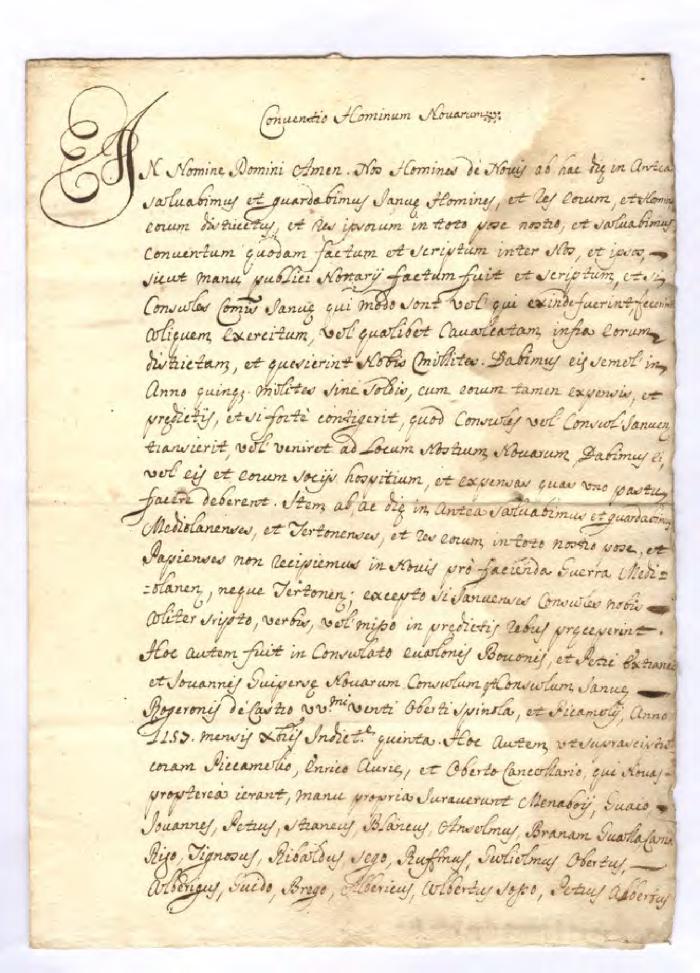 Conventio Hominum Novarum
IN Nomine Domini Amen. Nos Homines de Novis ab hac die in Antea
salvabimus et guardabimus Januę Homines, et Res eorum, et Homin
eorum districtus, et Res ipsorum in toto posse nostro, et salvabimus
Conventum quodam factum et scriptum inter Nos, et ipsos,
sicut manu publici Notarij factum fuit et scriptum, et si
Consules Comis Januę qui modo sont vel qui exinde fuerint fecerint
Aliquem Exercitum, vel qualibet Cavalcatam infra eorum
districtam, et quesierint Nobis Millites. Dabimus eis semel in
Anno quinq; Milites sine soldis, cum eorum tamen expensis, et
prędictis, et si fortè contigerit, quod Consules vel Consul Januen
transierit, vel veniret ad Locum Nostrum Novarum Dabimus ei,
vel eis et eorum socijs hospitium, et expensas quas uno pastu
facere deberent. Item ab ac die in Antea salvabimus et guardabimus
Mediolanenses, et Tertonenses, et Res eorum in toto nostro posse, et
Papienses non Recipiemus in Novis prò facienda Guerra Medi=
=olanen, neque Tertonen; excepto si Januenses Consules nobis
Aliter scripto, verbis, vel misso in prędictis Rebus pręceperint.
Hoc autem fuit in Consulato Bovonis, et Petri
et Jovannis Guiperse Novarum Consulum Consulum Januę
Rogeronis de Castro venti Oberti Spinola, et Picamelij, Anno
1157. mensis Xbris Indict.e quinta. Hoc Autem, ut suprascriptum
coram Piccamelio, Enrico Aurie, et Oberto Cancellario, qui Novas
propterea ierant, manu propria Juraverunt Menaboij, Guaco
Jovannes, Petrus, Straneus, Blancus, Anselmus, Branam Gualla
Rigo, Tignosus, Ribaldus sego, Ruffinus, Gulielmus Obertus,
Alberigus, Guido, Brego, Albericus, Albertus Sopo, Petrus Albertus